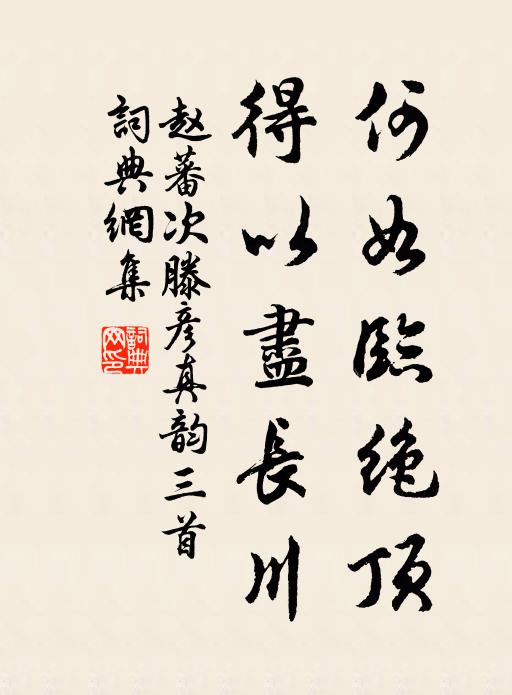 何如臨絶頂
得以盡長川
赵蕃次滕彦真韵三首
詞典網集
詞典網印